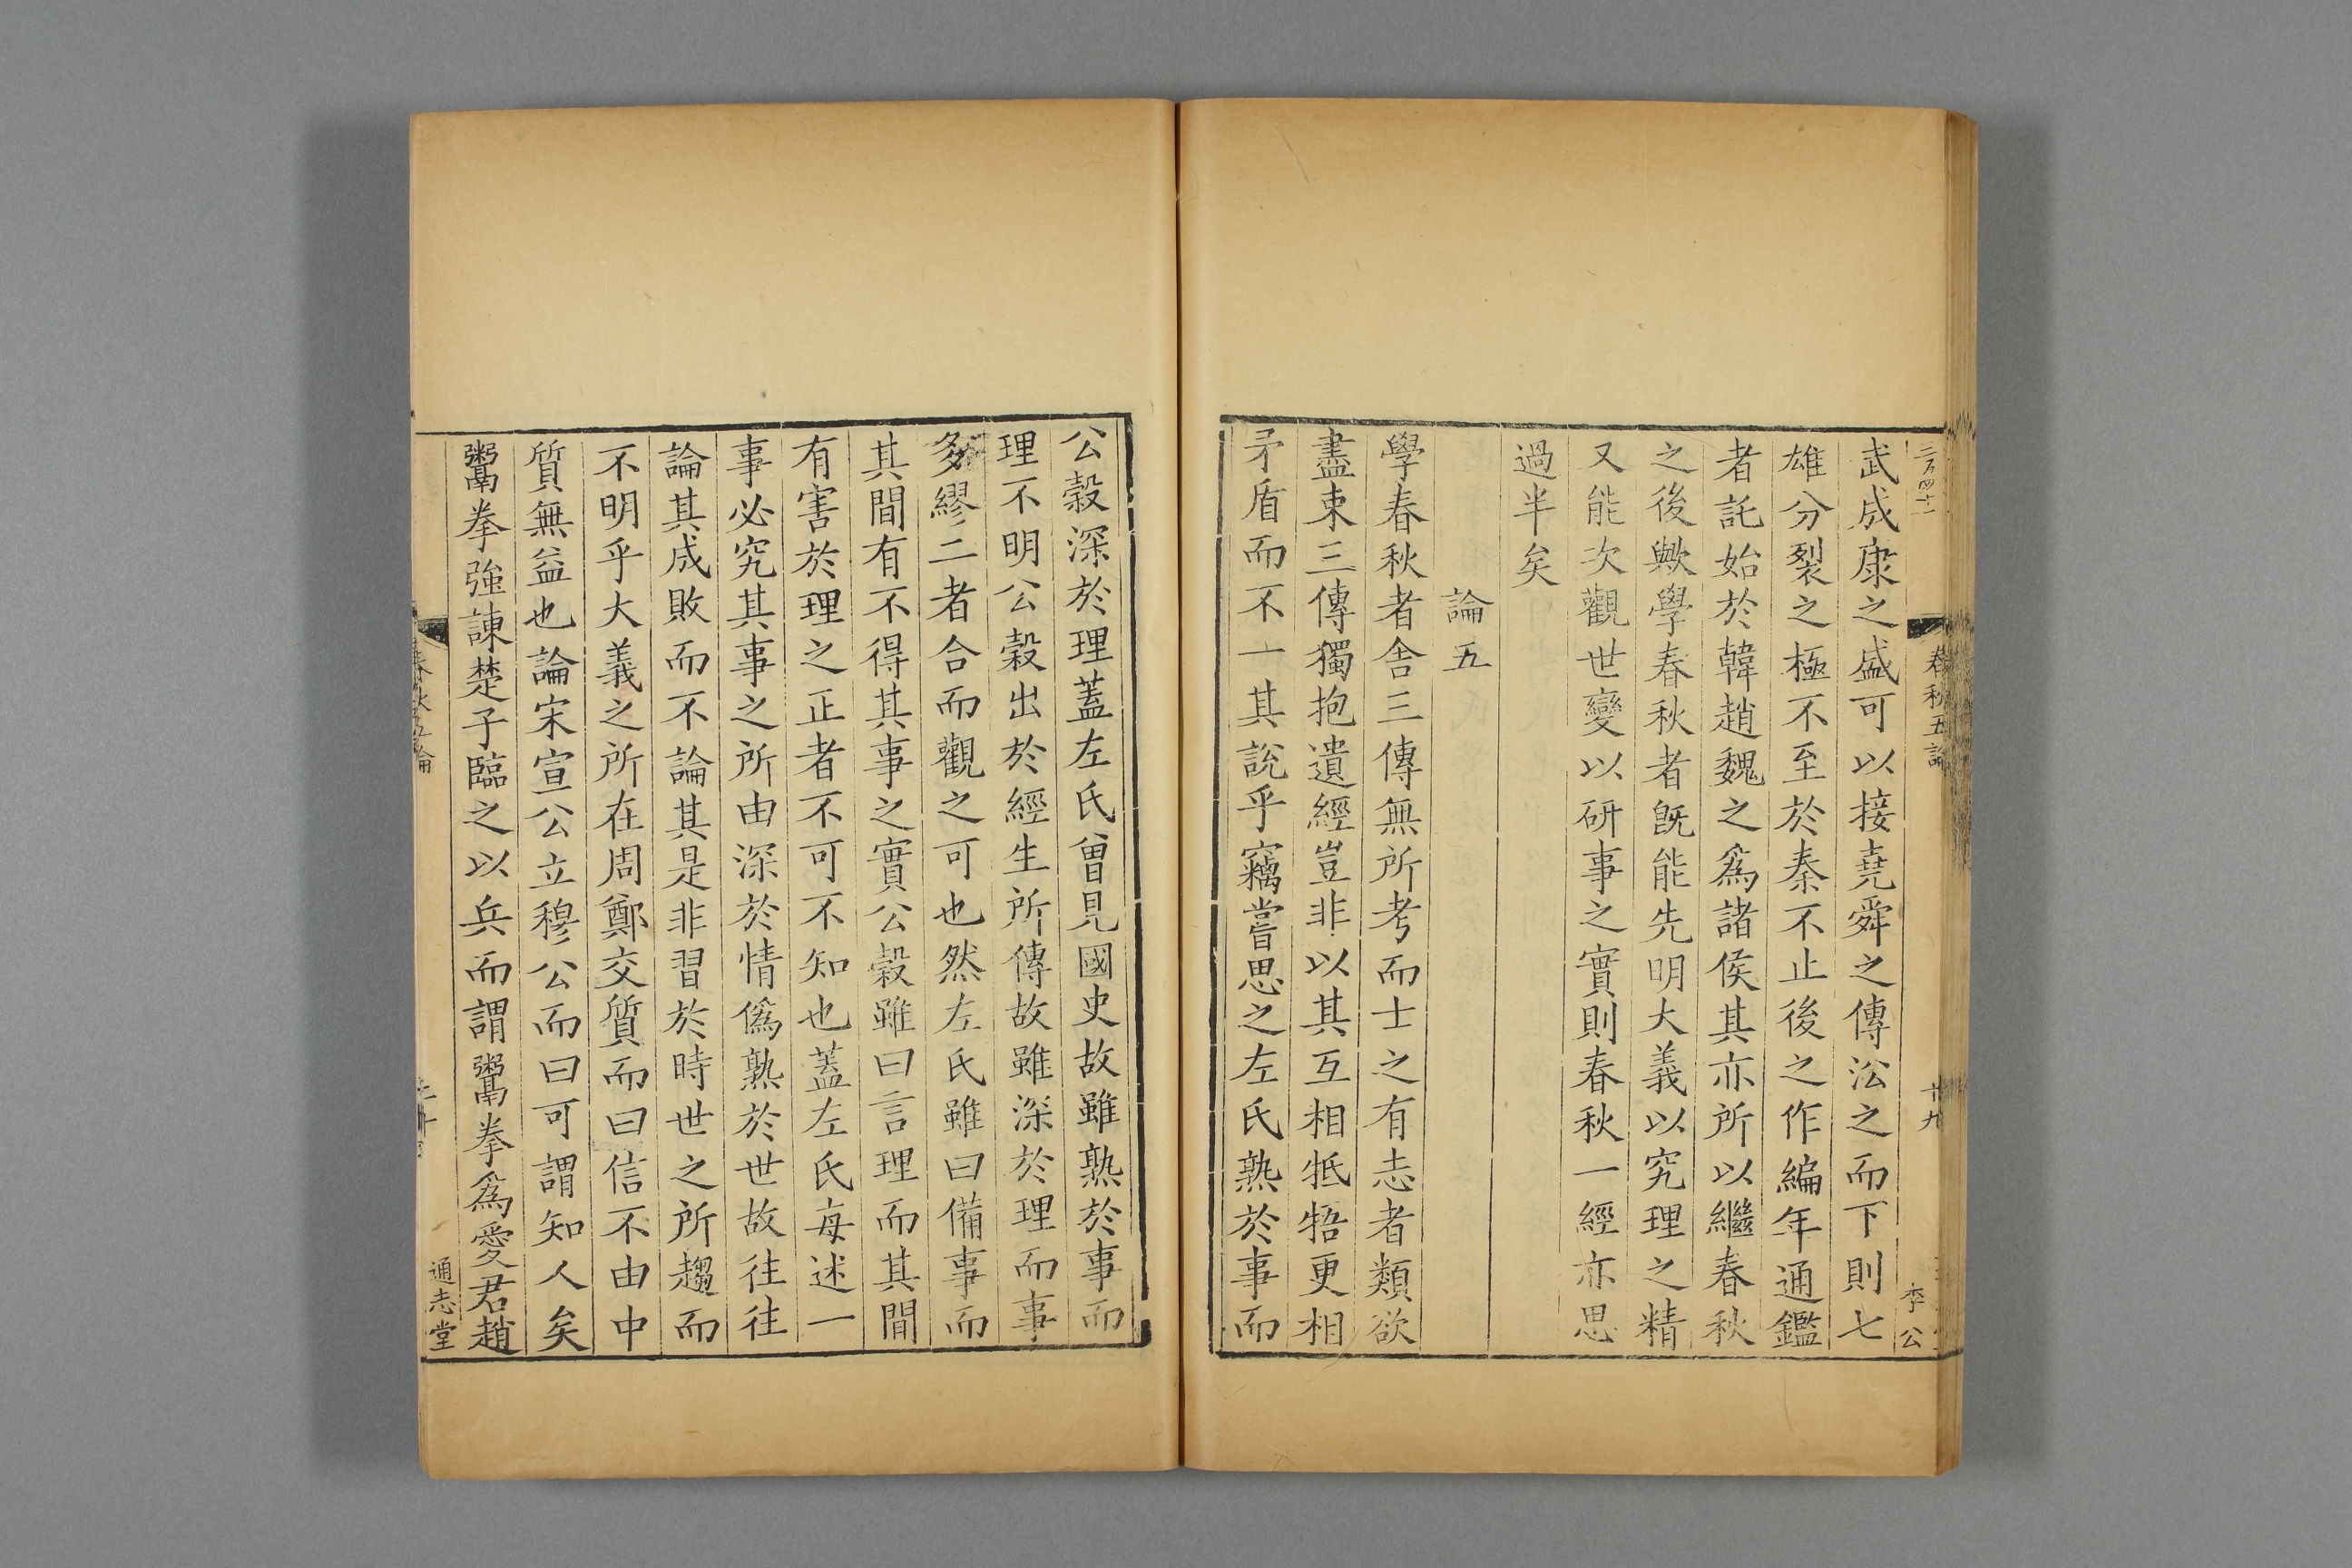 三百四十一
春秋五論
十九
李公
武成康之盛可以接堯舜之傳沿之而下則七
雄分裂之極不至於秦不止後之作編年通鑑
者託始於韓趙魏之為諸侯其亦所以繼春秋
之後歟學春秋者旣能先明大義以究理之精
又能次觀世變以研事之實則春秋一經亦思
過半矣
論五
學春秋者舍三傳無所考而士之有志者類欲
盡束三傳獨抱遺經豈非以其互相牴牾更相
矛盾而不一其說乎竊嘗思之左氏熟於事而
公穀深於理蓋左氏曾見國史故雖熟於事而
理不明公穀出於經生所傳故雖深於理而事
多繆二者合而觀之可也然左氏雖曰備事而
其間有不得其事之實公穀雖曰言理而其間
有害於理之正者不可不知也蓋左氏每述一
事必究其事之所由深於情僞熟於世故往往
論其成敗而不論其是非習於時世之所趨而
不明乎大義之所在周鄭交質而曰信不由中
質無益也論宋宣公立穆公而曰可謂知人矣
鬻拳強諫楚子臨之以兵而謂鬻拳為愛君趙
春秋五論
通志堂